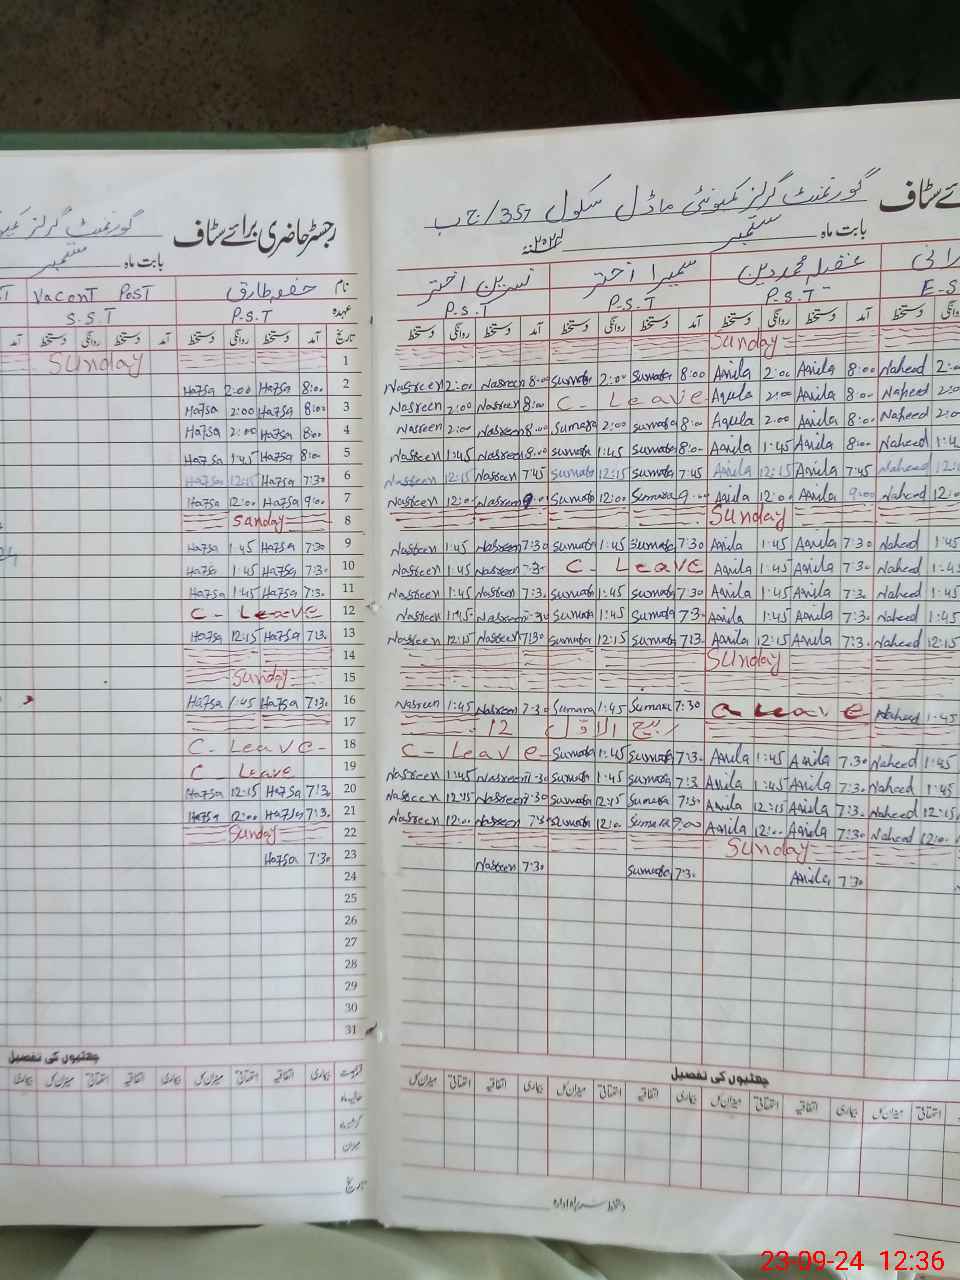 رجسٹر حاضری برائے سٹاف گورنمنٹ گرلز
بابت ماہ ستمبر
نام حفصہ طارق Vacant Post
عہدہ P.S.T S.S.T
تاریخ آمد دستخط روانگی دستخط آمد دستخط روانگی دستخط آمد
1 Sunday
2 8:00 Hafsa 2:00 Hafsa
3 8:00 Hafsa 2:00 Hafsa
4 8:00 Hafsa 2:00 Hafsa
5 8:00 Hafsa 1:45 Hafsa
6 7:30 Hafsa 12:15 Hafsa
7 9:00 Hafsa 12:00 Hafsa
8 Sunday
9 7:30 Hafsa 1:45 Hafsa
10 7:30 Hafsa 1:45 Hafsa
11 7:30 Hafsa 1:45 Hafsa
12 C - Leave
13 7:30 Hafsa 12:15 Hafsa
14
15 Sunday
16 7:30 Hafsa 1:45 Hafsa
17
18 C - Leave -
19 C Leave
20 7:30 Hafsa 12:15 Hafsa
21 7:30 Hafsa 12:00 Hafsa
22 Sunday
23 7:30 Hafsa
24
25
26
27
28
29
30
31
چھٹیوں کی تفصیل
بیماری اتفاقیہ استحقاقی میزان کل بیماری اتفاقیہ استحقاقی میزان کل بیماری
حالیہ ماہ
گزشتہ ماہ
میزان
تاریخ
ئے سٹاف گورنمنٹ گرلز کمیونٹی ماڈل سکول 357/ج ب
بابت ماہ ستمبر ۲۰۲۴ء
رانی عقیلہ محمد دین سمیرا اختر نسرین اختر
E.S P.S.T P.S.T P.S.T
دستخط آمد دستخط روانگی دستخط آمد دستخط روانگی دستخط آمد دستخط روانگی دستخط
Sunday
Nasreen 2:00 Nasreen 8:00 Sumera 2:00 Sumera 8:00 Aqila 2:00 Aqila 8:00 Naheed 2:00
Nasreen 2:00 Nasreen 8:00 C - Leave Aqila 2:00 Aqila 8:00 Naheed 2:00
Nasreen 2:00 Nasreen 8:00 Sumera 2:00 Sumera 8:00 Aqila 2:00 Aqila 8:00 Naheed 2:00
Nasreen 1:45 Nasreen 8:00 Sumera 1:45 Sumera 8:00 Aqila 1:45 Aqila 8:00 Naheed 1:4
Nasreen 12:15 Nasreen 7:45 Sumera 12:15 Sumera 7:45 Aqila 12:15 Aqila 7:45 Naheed 12:
Nasreen 12:00 Nasreen 9:00 Sumera 12:00 Sumera 9:00 Aqila 12:00 Aqila 9:00 Naheed 12:
Sunday
Nasreen 1:45 Nasreen 7:30 Sumera 1:45 Sumera 7:30 Aqila 1:45 Aqila 7:30 Naheed 1:45
Nasreen 1:45 Nasreen 7:30 C - Leave Aqila 1:45 Aqila 7:30 Naheed 1:45
Nasreen 1:45 Nasreen 7:30 Sumera 1:45 Sumera 7:30 Aqila 1:45 Aqila 7:30 Naheed 1:45
Nasreen 1:45 Nasreen 7:30 Sumera 1:45 Sumera 7:30 Aqila 1:45 Aqila 7:30 Naheed 1:45
Nasreen 12:15 Nasreen 7:30 Sumera 12:15 Sumera 7:30 Aqila 12:15 Aqila 7:30 Naheed 12:15
Sunday
Nasreen 1:45 Nasreen 7:30 Sumera 1:45 Sumera 7:30 C Leave Naheed 1:45
12 ربیع الاول
C - Leave Sumera 1:45 Sumera 7:30 Aqila 1:45 Aqila 7:30 Naheed 1:45
Nasreen 1:45 Nasreen 7:30 Sumera 1:45 Sumera 7:30 Aqila 1:45 Aqila 7:30 Naheed 1:45
Nasreen 12:15 Nasreen 7:30 Sumera 12:15 Sumera 7:30 Aqila 12:15 Aqila 7:30 Naheed 12:15
Nasreen 12:00 Nasreen 7:30 Sumera 12:00 Sumera 9:00 Aqila 12:00 Aqila 7:30 Naheed 12:00
Sunday
Nasreen 7:30 Sumera 7:30 Aqila 7:30
چھٹیوں کی تفصیل
استحقاقی میزان کل بیماری اتفاقیہ استحقاقی میزان کل بیماری اتفاقیہ استحقاقی میزان کل
دستخط سربراہ ادارہ
23-09-24 12:36